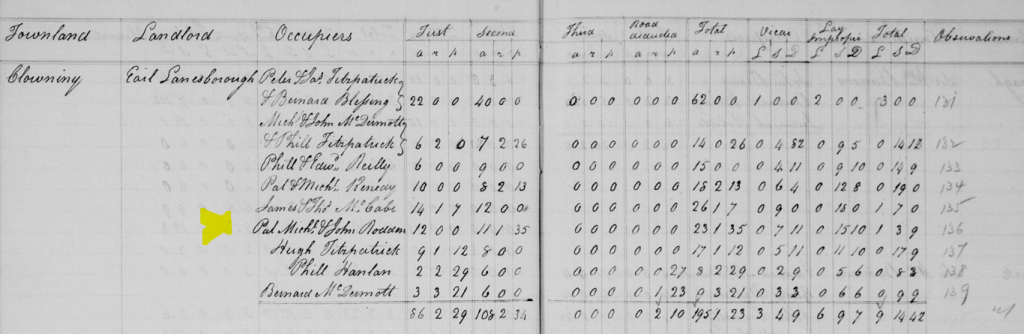 Townland Landlord Occupiers First Second Third Road deducted Total Vicar Lay Impropr Total Observations
a r p a r p a r p a r p a r p £ S D £ S D £ S D
Clowniny Earl Lanesborough Peter & Jas. Fitzpatrick
& Bernard Blessing 22 0 0 40 0 0 0 0 0 0 0 0 62 0 0 1 0 0 2 0 0 3 0 0 131
Mich & John McDermott
& Phill Fitzpatrick 6 2 0 7 2 26 0 0 0 0 0 0 14 0 26 0 4 0 9 5 0 14 132
Phill & Edwd. Reilly 6 0 0 9 0 0 0 0 0 0 0 0 15 0 0 0 4 11 0 9 10 0 14 9 133
Pat & Michl. Kenedy 10 0 0 8 2 13 0 0 0 0 0 0 18 2 13 0 6 4 0 12 8 0 19 0 134
James & Thos McCabe 14 1 7 12 0 0 0 0 0 0 0 0 26 1 7 0 9 0 0 1 7 0 135
Pat Michl. & John Rodden 12 0 0 11 1 35 0 0 0 0 0 0 23 1 35 0 7 11 0 15 10 1 3 9 136
Hugh Fitzpatrick 9 1 12 8 0 0 0 0 0 0 0 0 17 1 12 0 5 11 0 11 10 0 17 9 137
Phill Hanlan 2 2 29 6 0 0 0 0 0 0 0 27 8 2 29 0 2 9 0 5 6 0 8 3 138
Bernard McDermott 3 3 21 6 0 0 0 0 0 0 1 23 9 3 21 0 3 3 0 6 6 0 9 9 139
86 2 29 108 2 34 0 0 0 0 2 10 195 1 23 3 4 9 6 9 7 9 14